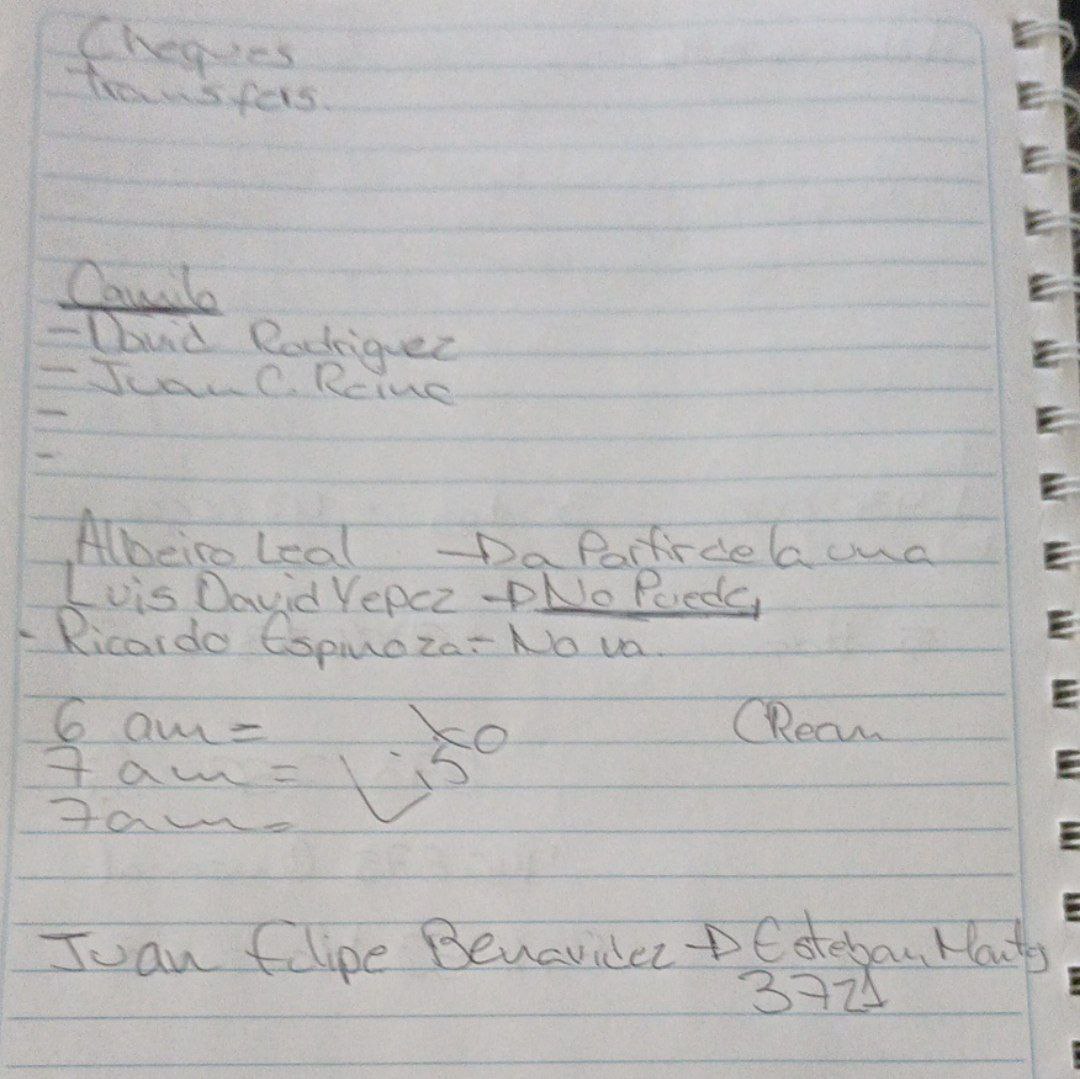 Cheques
transfers.
Camilo
- David Rodriguez
- Juan C. Reina
-
-
Albeiro Leal → a Partir de la una
Luis David Yepez → No Puede
- Ricardo Espinoza = No va.
6 am =
7 am =
7am =
Juan Felipe Benavidez → Esteban
3721